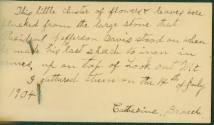 This little cluster of flowers & leaves were
plucked from the large stone that
President Jefferson Davis stood on when
he made his last speach to
up on top of Look out Mt
I gathered them on the 14th of July
1904
Catherine